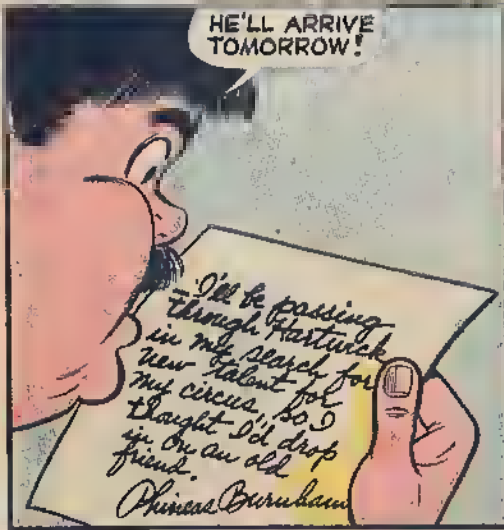 HE'LL ARRIVE
TOMORROW!
—I'll be passing
through Hartwick
in my search for
new talent for
my circus, so I
thought I'd drop
in on an old
friend.
Phineas Burnham